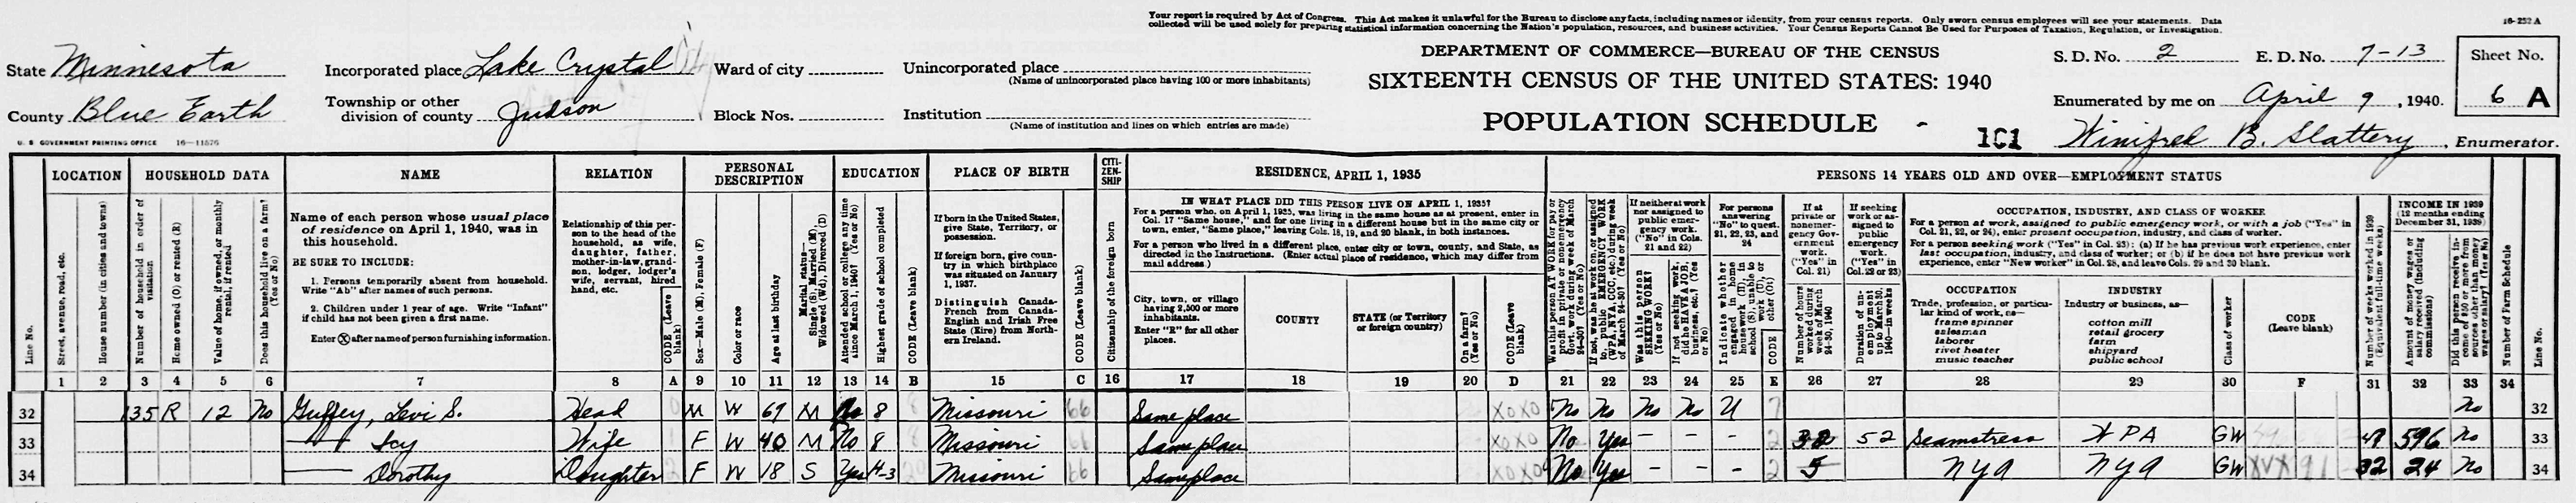 Your report is required by Act of Congress. This Act makes it unlawful for the Bureau to disclose any facts, including names or identity, from your census reports. Only sworn census employees will see your statements. Data
collected will be used solely for preparing statistical information concerning the Nation's population, resources, and business activities. Your Census Reports Cannot Be Used for Purposes of Taxation, Regulation, or Investigation.
16-252 A
DEPARTMENT OF COMMERCE—BUREAU OF THE CENSUS
SIXTEENTH CENSUS OF THE UNITED STATES: 1940
POPULATION SCHEDULE
State Minnesota
County Blue Earth
Incorporated place Lake Crystal
Township or other division of county Judson
Ward of city
Block Nos.
Unincorporated place
(Name of unincorporated place having 100 or more inhabitants)
Institution
(Name of institution and lines on which entries are made)
S. D. No. 2 E. D. No. 7-13
Sheet No. 6 A
Enumerated by me on April 9, 1940.
101 Winifred B. Slattery, Enumerator.
U. S GOVERNMENT PRINTING OFFICE 16—11576
LOCATION
HOUSEHOLD DATA
NAME
RELATION
PERSONAL DESCRIPTION
EDUCATION
PLACE OF BIRTH
CITIZENSHIP
RESIDENCE, APRIL 1, 1935
PERSONS 14 YEARS OLD AND OVER—EMPLOYMENT STATUS
Line No.
Street, avenue, road, etc.
House number (in cities and towns)
Number of household in order of visitation
Home owned (O) or rented (R)
Value of home, if owned, or monthly rental, if rented
Does this household live on a farm? (Yes or No)
Name of each person whose usual place of residence on April 1, 1940, was in this household.
BE SURE TO INCLUDE:
1. Persons temporarily absent from household. Write "Ab" after names of such persons.
2. Children under 1 year of age. Write "Infant" if child has not been given a first name.
Enter ⓧ after name of person furnishing information.
Relationship of this person to the head of the household, as wife, daughter, father, mother-in-law, grandson, lodger, lodger's wife, servant, hired hand, etc.
CODE (Leave blank)
Sex—Male (M), Female (F)
Color or race
Age at last birthday
Marital status—Single (S), Married (M), Widowed (Wd), Divorced (D)
Attended school or college any time since March 1, 1940? (Yes or No)
Highest grade of school completed
CODE (Leave blank)
If born in the United States, give State, Territory, or possession.
If foreign born, give country in which birthplace was situated on January 1, 1937.
Distinguish Canada-French from Canada-English and Irish Free State (Eire) from Northern Ireland.
CODE (Leave blank)
Citizenship of the foreign born
IN WHAT PLACE DID THIS PERSON LIVE ON APRIL 1, 1935?
For a person who, on April 1, 1935, was living in the same house as at present, enter in Col. 17 "Same house," and for one living in a different house but in the same city or town, enter, "Same place," leaving Cols. 18, 19, and 20 blank, in both instances.
For a person who lived in a different place, enter city or town, county, and State, as directed in the Instructions. (Enter actual place of residence, which may differ from mail address.)
City, town, or village having 2,500 or more inhabitants.
Enter "R" for all other places.
COUNTY
STATE (or Territory or foreign country)
On a farm? (Yes or No)
CODE (Leave blank)
Was this person AT WORK for pay or profit in private or nonemergency Govt. work during week of March 24-30? (Yes or No)
If not, was he at work on, or assigned to, public EMERGENCY WORK (WPA, NYA, CCC, etc.) during week of March 24-30? (Yes or No)
If neither at work nor assigned to public emergency work. ("No" in Cols. 21 and 22)
Was this person SEEKING WORK? (Yes or No)
If not seeking work, did he HAVE A JOB, business, etc.? (Yes or No)
For persons answering "No" to quest. 21, 22, 23, and 24
Indicate whether engaged in home housework (H), in school (S), unable to work (U), or other (Ot)
CODE
If at private or nonemergency Government work. ("Yes" in Col. 21)
Number of hours worked during week of March 24-30, 1940
If seeking work or assigned to public emergency work. ("Yes" in Col. 22 or 23)
Duration of unemployment up to March 30, 1940—in weeks
OCCUPATION, INDUSTRY, AND CLASS OF WORKER
For a person at work, assigned to public emergency work, or with a job ("Yes" in Col. 21, 22, or 24), enter present occupation, industry, and class of worker.
For a person seeking work ("Yes" in Col. 23): (a) If he has previous work experience, enter last occupation, industry, and class of worker; or (b) if he does not have previous work experience, enter "New worker" in Col. 28, and leave Cols. 29 and 30 blank.
OCCUPATION
Trade, profession, or particular kind of work, as—
frame spinner
salesman
laborer
rivet heater
music teacher
INDUSTRY
Industry or business, as—
cotton mill
retail grocery
farm
shipyard
public school
Class of worker
CODE (Leave blank)
Number of weeks worked in 1939 (Equivalent full-time weeks)
INCOME IN 1939 (12 months ending December 31, 1939)
Amount of money wages or salary received (including commissions)
Did this person receive income of $50 or more from sources other than money wages or salary? (Yes or No)
Number of Farm Schedule
Line No.
1 2 3 4 5 6 7 8 A 9 10 11 12 13 14 B 15 C 16 17 18 19 20 D 21 22 23 24 25 E 26 27 28 29 30 F 31 32 33 34
32 135 R 12 No Guffey, Levi S. Head 0 M W 67 M No 8 8 Missouri 66 Same place X0X0 No No No No U 7 No 32
33 Icy Wife 1 F W 40 M No 8 8 Missouri 66 Same place X0X0 No Yes - - - 2 38 52 Seamstress WPA GW 49 596 No 33
34 Dorothy Daughter 2 F W 18 S Yes H-3 Missouri 66 Same place X0X0 No Yes - - - 2 5 nya nya GW 32 24 No 34